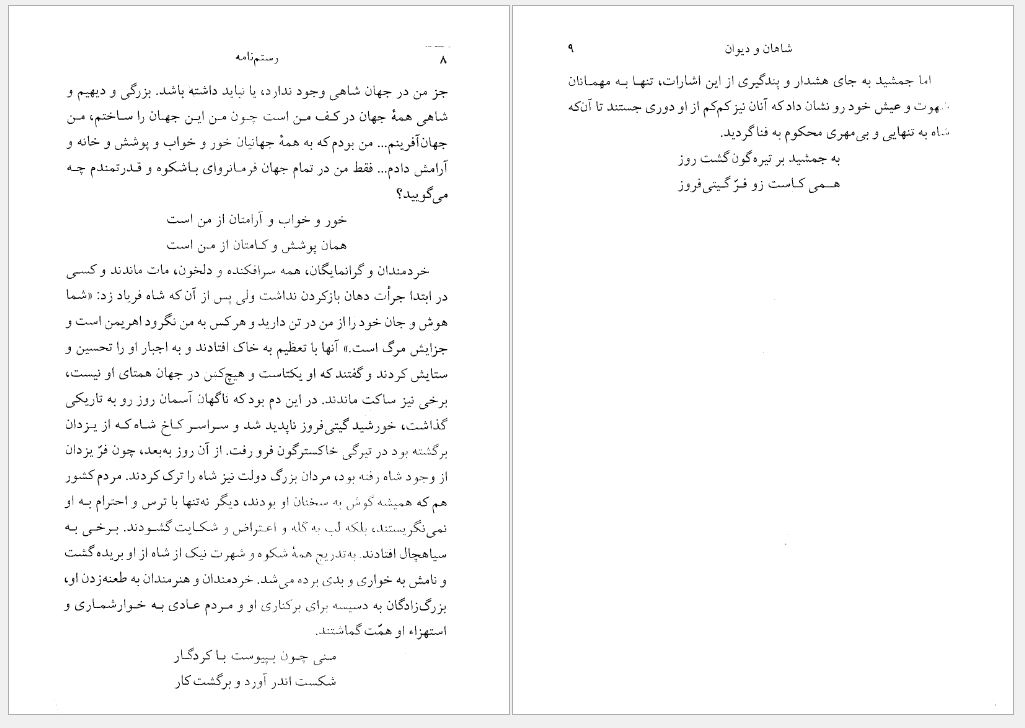 ۸
رستم‌نامه
جز من در جهان شاهی وجود ندارد، یا نباید داشته باشد. بزرگی و دیهیم و
شاهی همهٔ جهان در کف من است چون من این جهان را ساختم، من
جهان‌آفرینم... من بودم که به همهٔ جهانیان خور و خواب و پوشش و خانه و
آرامش دادم... فقط من در تمام جهان فرمانروای باشکوه و قدرتمندم چه
می‌گویید؟
خور و خواب و آرامتان از من است
همان پوشش و کامتان از من است
خردمندان و گرانمایگان، همه سرافکنده و دلخون، مات ماندند و کسی
در ابتدا جرأت دهان بازکردن نداشت ولی پس از آن‌که شاه فریاد زد: «شما
هوش و جان خود را از من در تن دارید و هرکس به من نگرود اهریمن است و
جزایش مرگ است.» آنها با تعظیم به خاک افتادند و به اجبار او را تحسین و
ستایش کردند و گفتند که او یکتاست و هیچ‌کس در جهان همتای او نیست،
برخی نیز ساکت ماندند. در این دم بود که ناگهان آسمان روز رو به تاریکی
گذاشت، خورشید گیتی‌فروز ناپدید شد و سراسر کاخ شاه که از یزدان
برگشته بود در تیرگی خاکسترگون فرو رفت. از آن روز به‌بعد، چون فرّ یزدان
از وجود شاه رفته بود، مردان بزرگ دولت نیز شاه را ترک کردند. مردم کشور
هم که همیشه گوش به سخنان او بودند، دیگر نه‌تنها با ترس و احترام به او
نمی‌نگریستند، بلکه لب به گله و اعتراض و شکایت گشودند. برخی به
سیاهچال افتادند. به‌تدریج همهٔ شکوه و شهرت نیک از شاه از او بریده گشت
و نامش به خواری و بدی برده می‌شد. خردمندان و هنرمندان به طعنه‌زدن او،
بزرگ‌زادگان به دسیسه برای برکناری او و مردم عادی به خوارشماری و
استهزاء او همّت گماشتند.
منی چون بپیوست با کردگار
شکست اندر آورد و برگشت کار
شاهان و دیوان
۹
اما جمشید به جای هشدار و پندگیری از این اشارات، تنها به مهمانان
شهوت و عیش خود رو نشان داد که آنان نیز کم‌کم از او دوری جستند تا آن‌که
شاه به تنهایی و بی‌مهری محکوم به فنا گردید.
به جمشید بر تیره‌گون گشت روز
همی کاست زو فرّ گیتی‌فروز